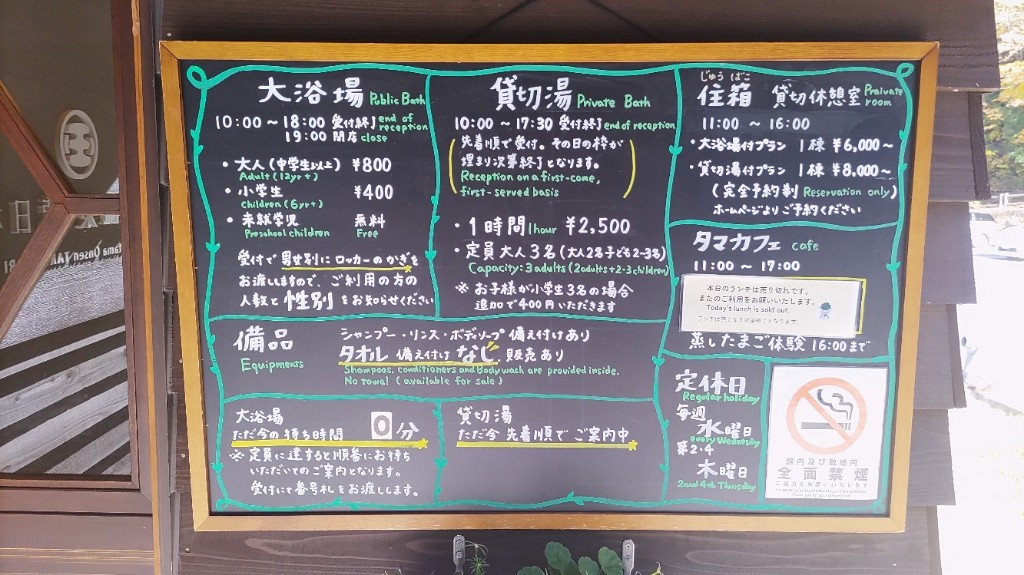 大浴場 Public Bath
10:00 ～ 18:00 受付終了 end of reception
19:00 閉店 close
・大人(中学生以上) ¥800
Adult (12yr+)
・小学生 ¥400
children (6yr+)
・未就学児 無料
Preschool children Free
受付で男女別にロッカーのかぎを
お渡ししますので、ご利用の方の
人数と性別をお知らせください
貸切湯 Private Bath
10:00 ～ 17:30 受付終了 end of reception
先着順で受付。その日の枠が
埋まり次第終了となります。
Reception on a first-come,
first-served basis
・1時間 1hour ¥2,500
・定員大人3名(大人2名子ども2~3名)
Capacity: 3 adults (2adults+2-3children)
※ お子様が小学生3名の場合
追加で400円いただきます
じゅう ばこ
住箱 貸切休憩室 Praivate room
11:00 ～ 16:00
・大浴場付プラン 1棟 ¥6,000～
・貸切湯付プラン 1棟 ¥8,000～
(完全予約制 Reservation only)
ホームページよりご予約ください
タマカフェ cafe
11:00 ～ 17:00
本日のランチは売り切れです。
またのご利用をお願いいたします。
Today's lunch is sold out.
蒸したまご体験 16:00まで
備品 Equipments
シャンプー・リンス・ボディソープ 備え付けあり
タオル 備え付け なし 販売あり
Shampoos, conditioners and Body wash are provided inside.
No towal (available for sale)
大浴場
ただ今の待ち時間 0分
※ 定員に達すると順番にお待ち
いただいてのご案内となります。
受付にて番号札をお渡しします。
貸切湯
ただ今 先着順で ご案内中
定休日
Regular holiday
毎週
水曜日
every Wednesday
第2・4
木曜日
2and 4th Thursday
館内及び敷地内
全面禁煙
ご協力をお願いいたします